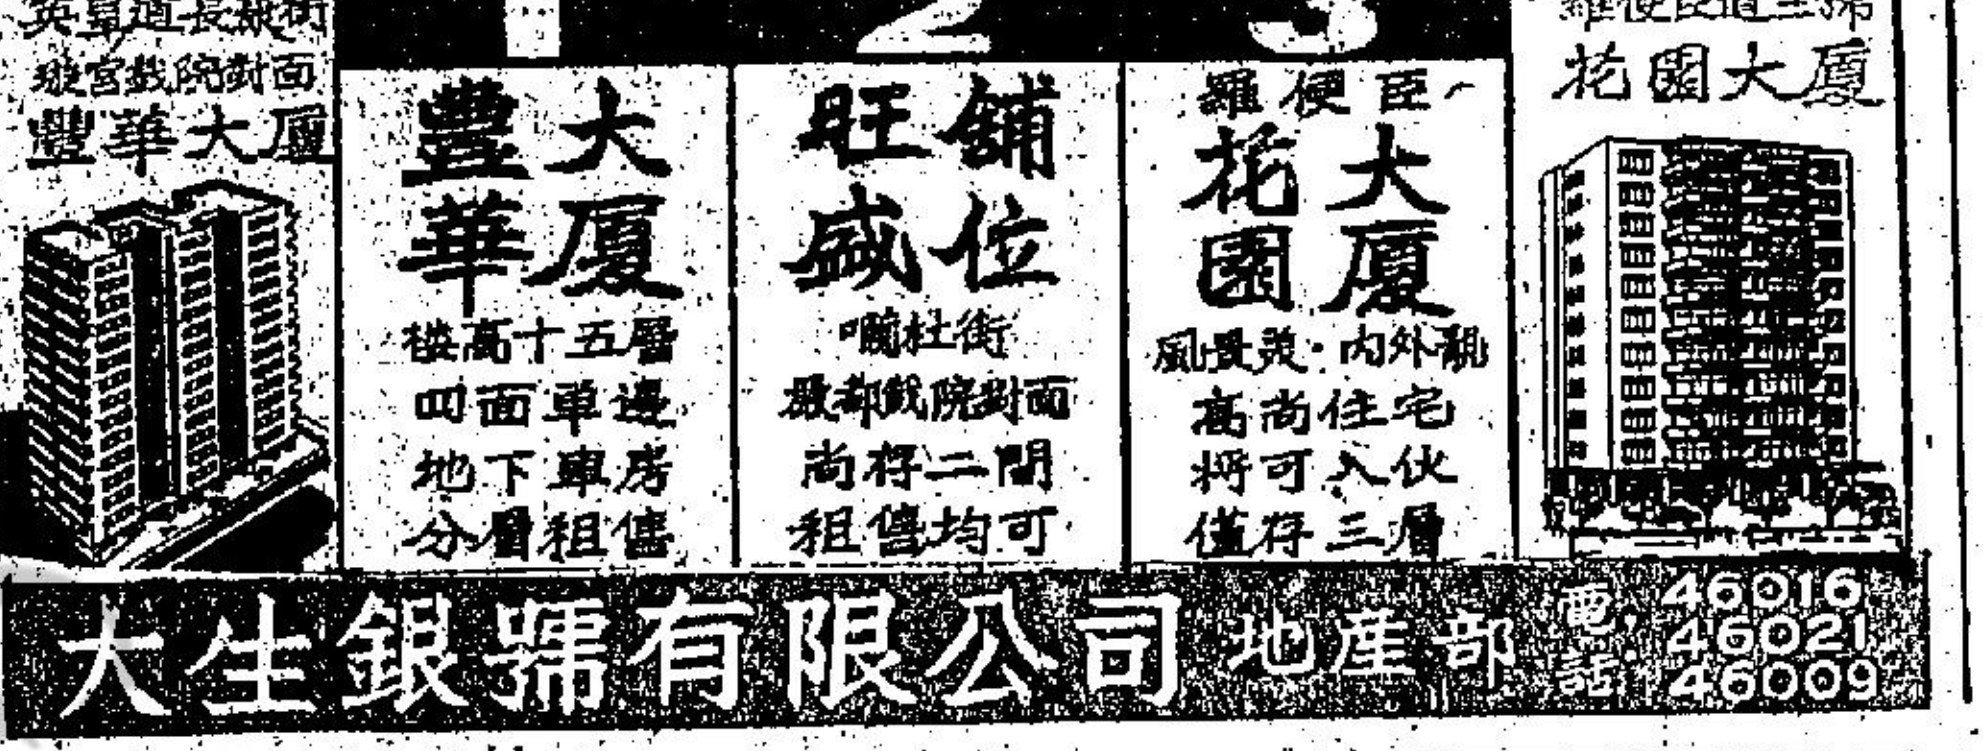 英皇道長康街
璇宮戲院對面
豐華大厦
1
豊華大厦
楼高十五層
四面單邊
地下車房
分層租售
2
旺盛舖位
囒杜街
戲院對面
尚存二間
租售均可
3
羅便臣
花園大厦
風景美·內外靚
高尚住宅
将可入伙
僅存三層
羅便臣道
花園大厦
大生銀號有限公司 地產部
電話 46016
46021
46009